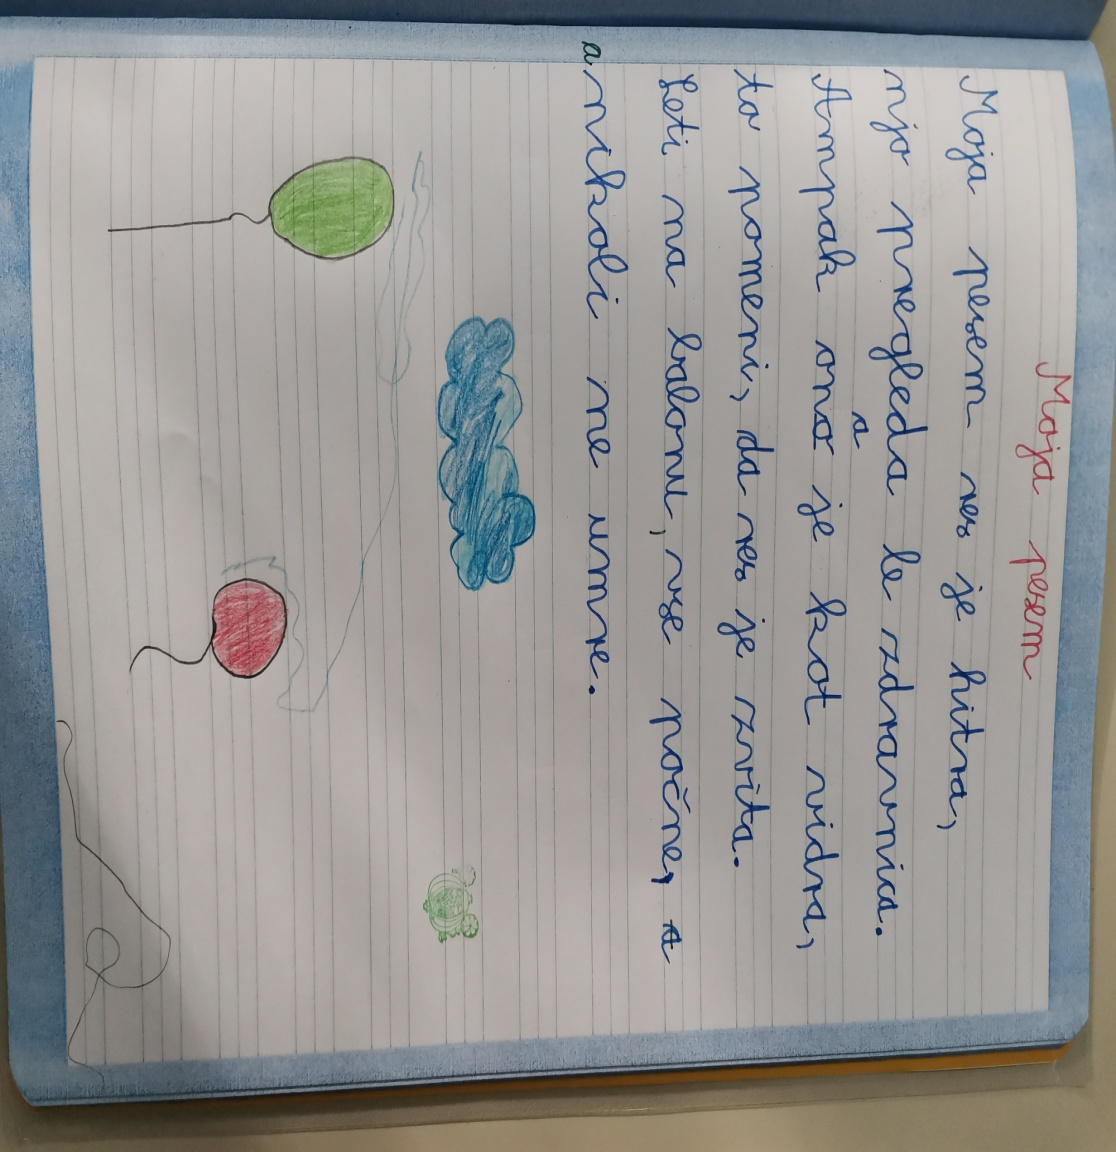 Moja pesem
Moja pesem res je hitra,
njo pregleda le zdravnica.
Ampak ona je kot vidra,
to pomeni, da res je zvita.
Leti na balonu, vse počne, a
a nikoli ne umre.